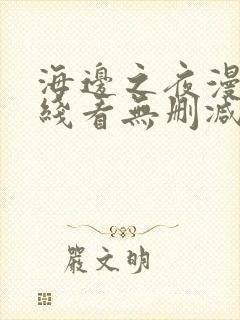 海邊之夜漫
綫看無刪減
嚴文明